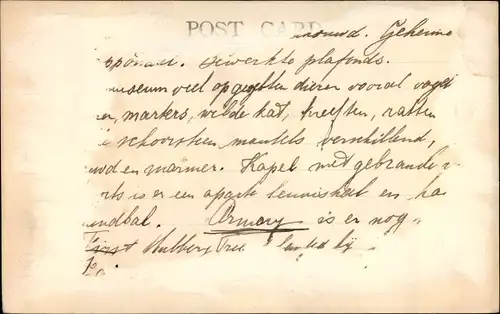 POST CARD
Geheime
bewerkte plafonds.
useum veel opgezetten dieren vooral vogel
markers, wilde kat, kreeften, ratten
schoorsteen mantels verschillend,
en marmer. Kapel met gebrande
is er een aparte tennishal en ha
ndbal. Armory is er nog
First Mulberry Tree